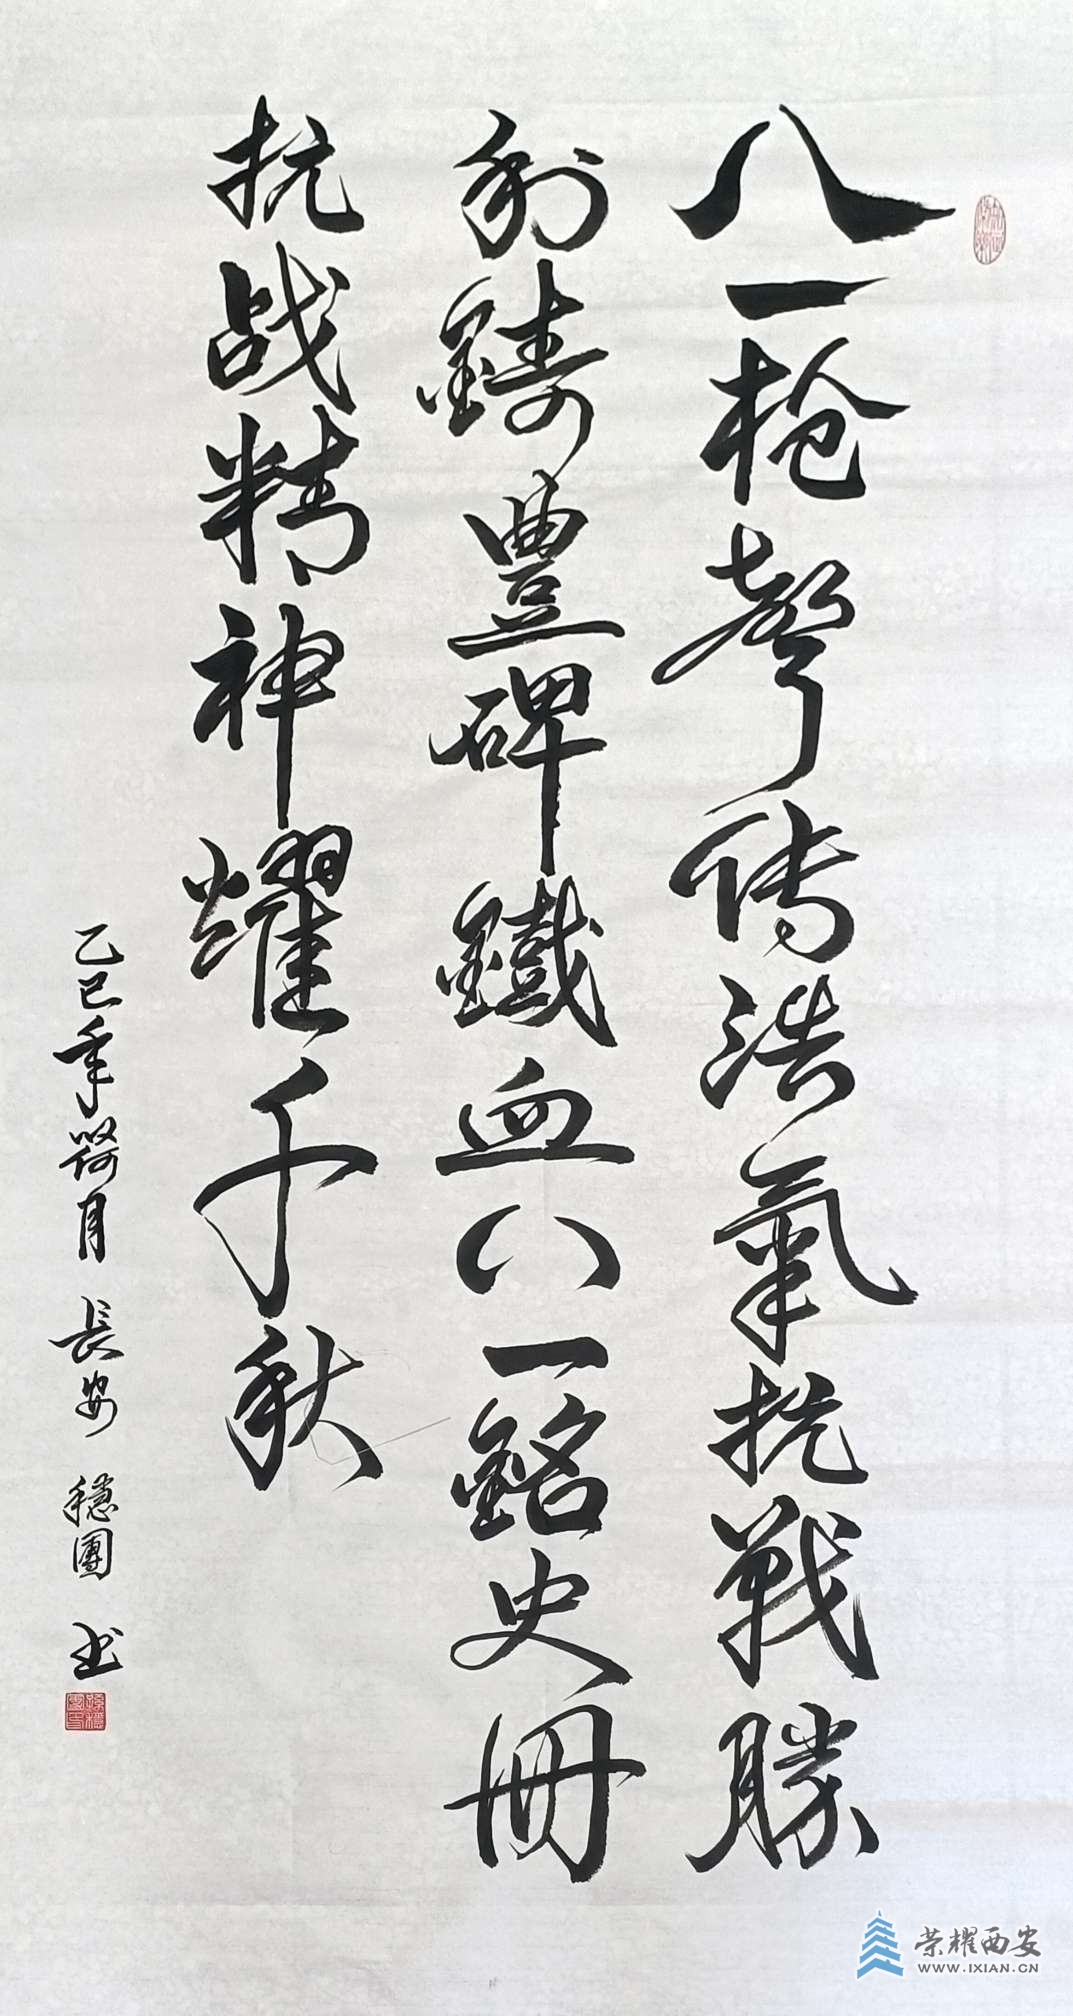 八一枪聲传浩氣抗戰勝
利鑄豐碑鐵血八一銘史冊
抗战精神耀千秋
乙巳年荷月 長安 穩團 书
荣耀西安
WWW.IXIAN.CN